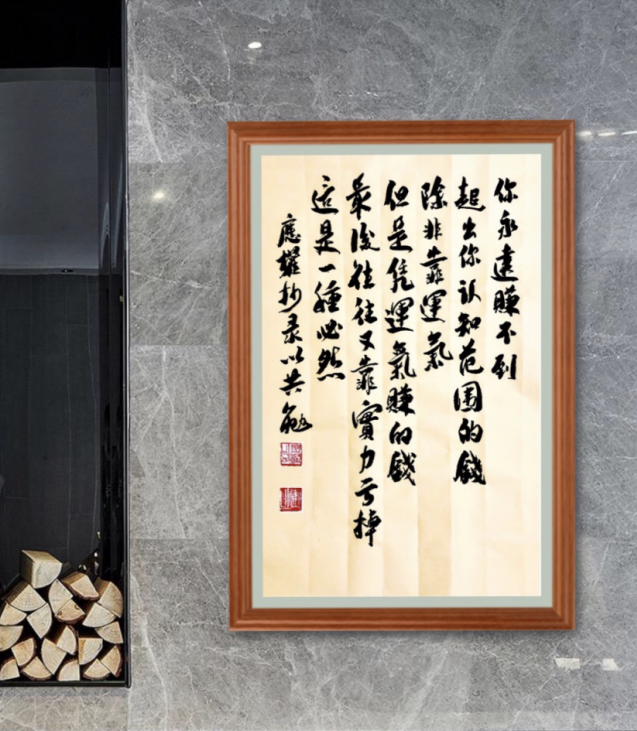 你永遠賺不到
超出你认知范围的錢
除非靠運氣
但是凭運氣賺的錢
最後往往又靠實力亏掉
這是一種必然
應耀抄录以共勉